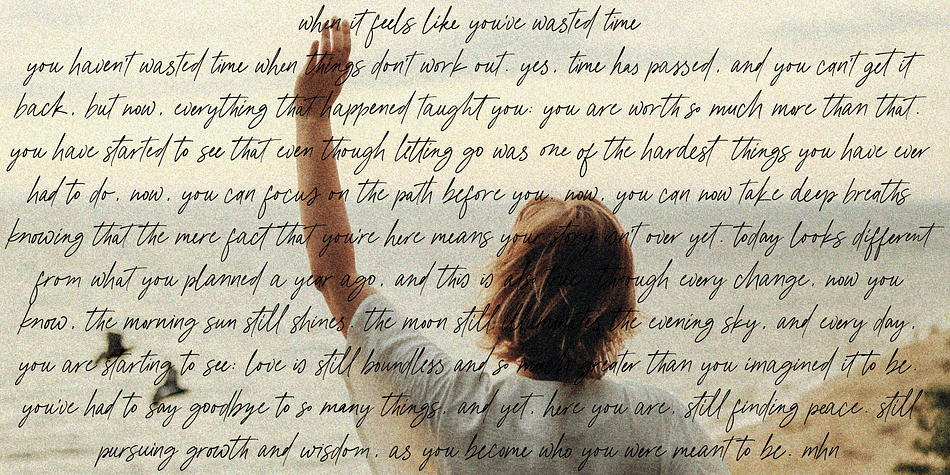 when it feels like you've wasted time
you haven't wasted time when things don't work out. yes, time has passed, and you can't get it
back, but now, everything that happened taught you: you are worth so much more than that.
you have started to see that even though letting go was one of the hardest things you have ever
had to do, now, you can focus on the path before you. now, you can now take deep breaths
knowing that the mere fact that you're here means your story isn't over yet. today looks different
from what you planned a year ago, and this is also true: through every change, now you
know, the morning sun still shines, the moon still illuminates the evening sky, and every day,
you are starting to see: love is still boundless and so much greater than you imagined it to be.
you've had to say goodbye to so many things, and yet, here you are, still finding peace. still
pursuing growth and wisdom, as you become who you were meant to be. mhn